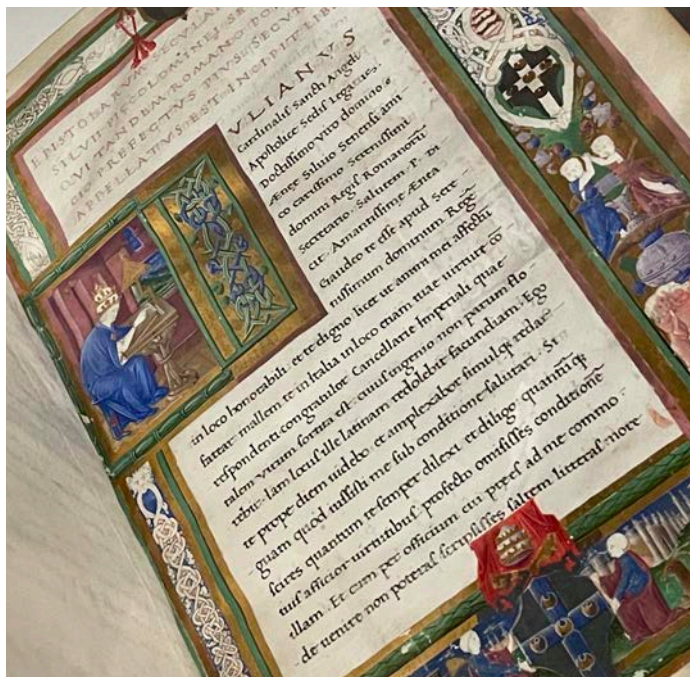 EPISTOLARVM SECVLA
SILVII PICOLOMINEI SE
QVI TANDEM ROMANO PON
CIO PREFECTVS PIVS SECVN
APPELLATVS EST INCIPIT LIB
VLIANVS
Cardinalis Sancti Angeli
Apostolice Sedis legatus.
Doctissimo viro domino e
Ænee Siluio Senensi ami
co carissimo Serenissimi
domini Regis Romanorū
Secretario. Salutem. P. Di
cit. Amantissime Ænea
Gaudeo te esse apud Sere
nissimum dominum Regē
in loco honorabili. et te digno. licet ut animi mei affectū
fatear. mallem te in Italia in loco etiam tuae uirtuti cō
respondenti. congratulor Cancellarie Imperiali quae
talem uirum sortita est. cuius ingenio non parum flo
rebit. Iam locus ille latinam redolebit facundiam. Ego
te prope diem uidebo. et amplexabor simulqꝫ redar
guam quod iussisti me sub conditione salutari. Si
scires quantum te semper dilexi. et diligo. quantiſqꝫ
tuis afficior uirtutibus. profecto omisisses conditionē
illam. Et cum per officium cui prees ad me commo
de uenire non poteras scripsisses saltem litteras. nore